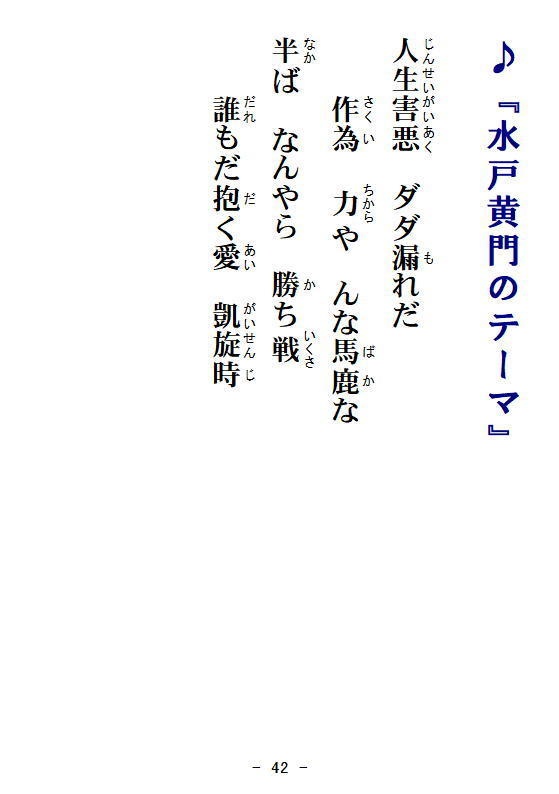 ♪『水戸黄門のテーマ』
人生害悪　ダダ漏れだ
じんせいがいあく　も
作為　力や　んな馬鹿な
さくい　ちから　ばか
半ば　なんやら　勝ち戦
なか　か　いくさ
誰もだ抱く愛　凱旋時
だれ　だ　あい　がいせんじ
- 42 -